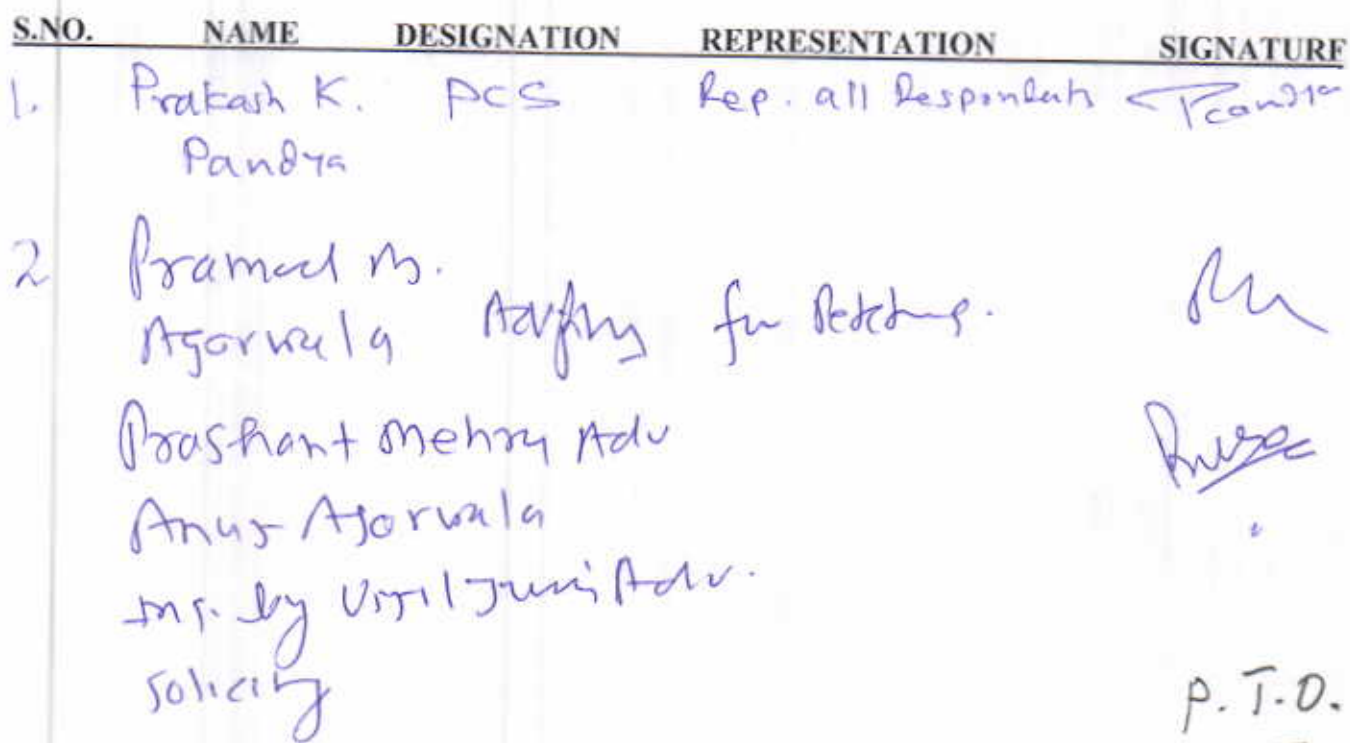 S.NO. NAME DESIGNATION REPRESENTATION SIGNATURE
1. Prakash K. PCS Rep. all Respondents
Pandya
2 Pramod M.
Agarwala for
Prashant Mehra Adv
Anuj Agarwala
Ins. by Vigil Juris Adv.
P.T.O.